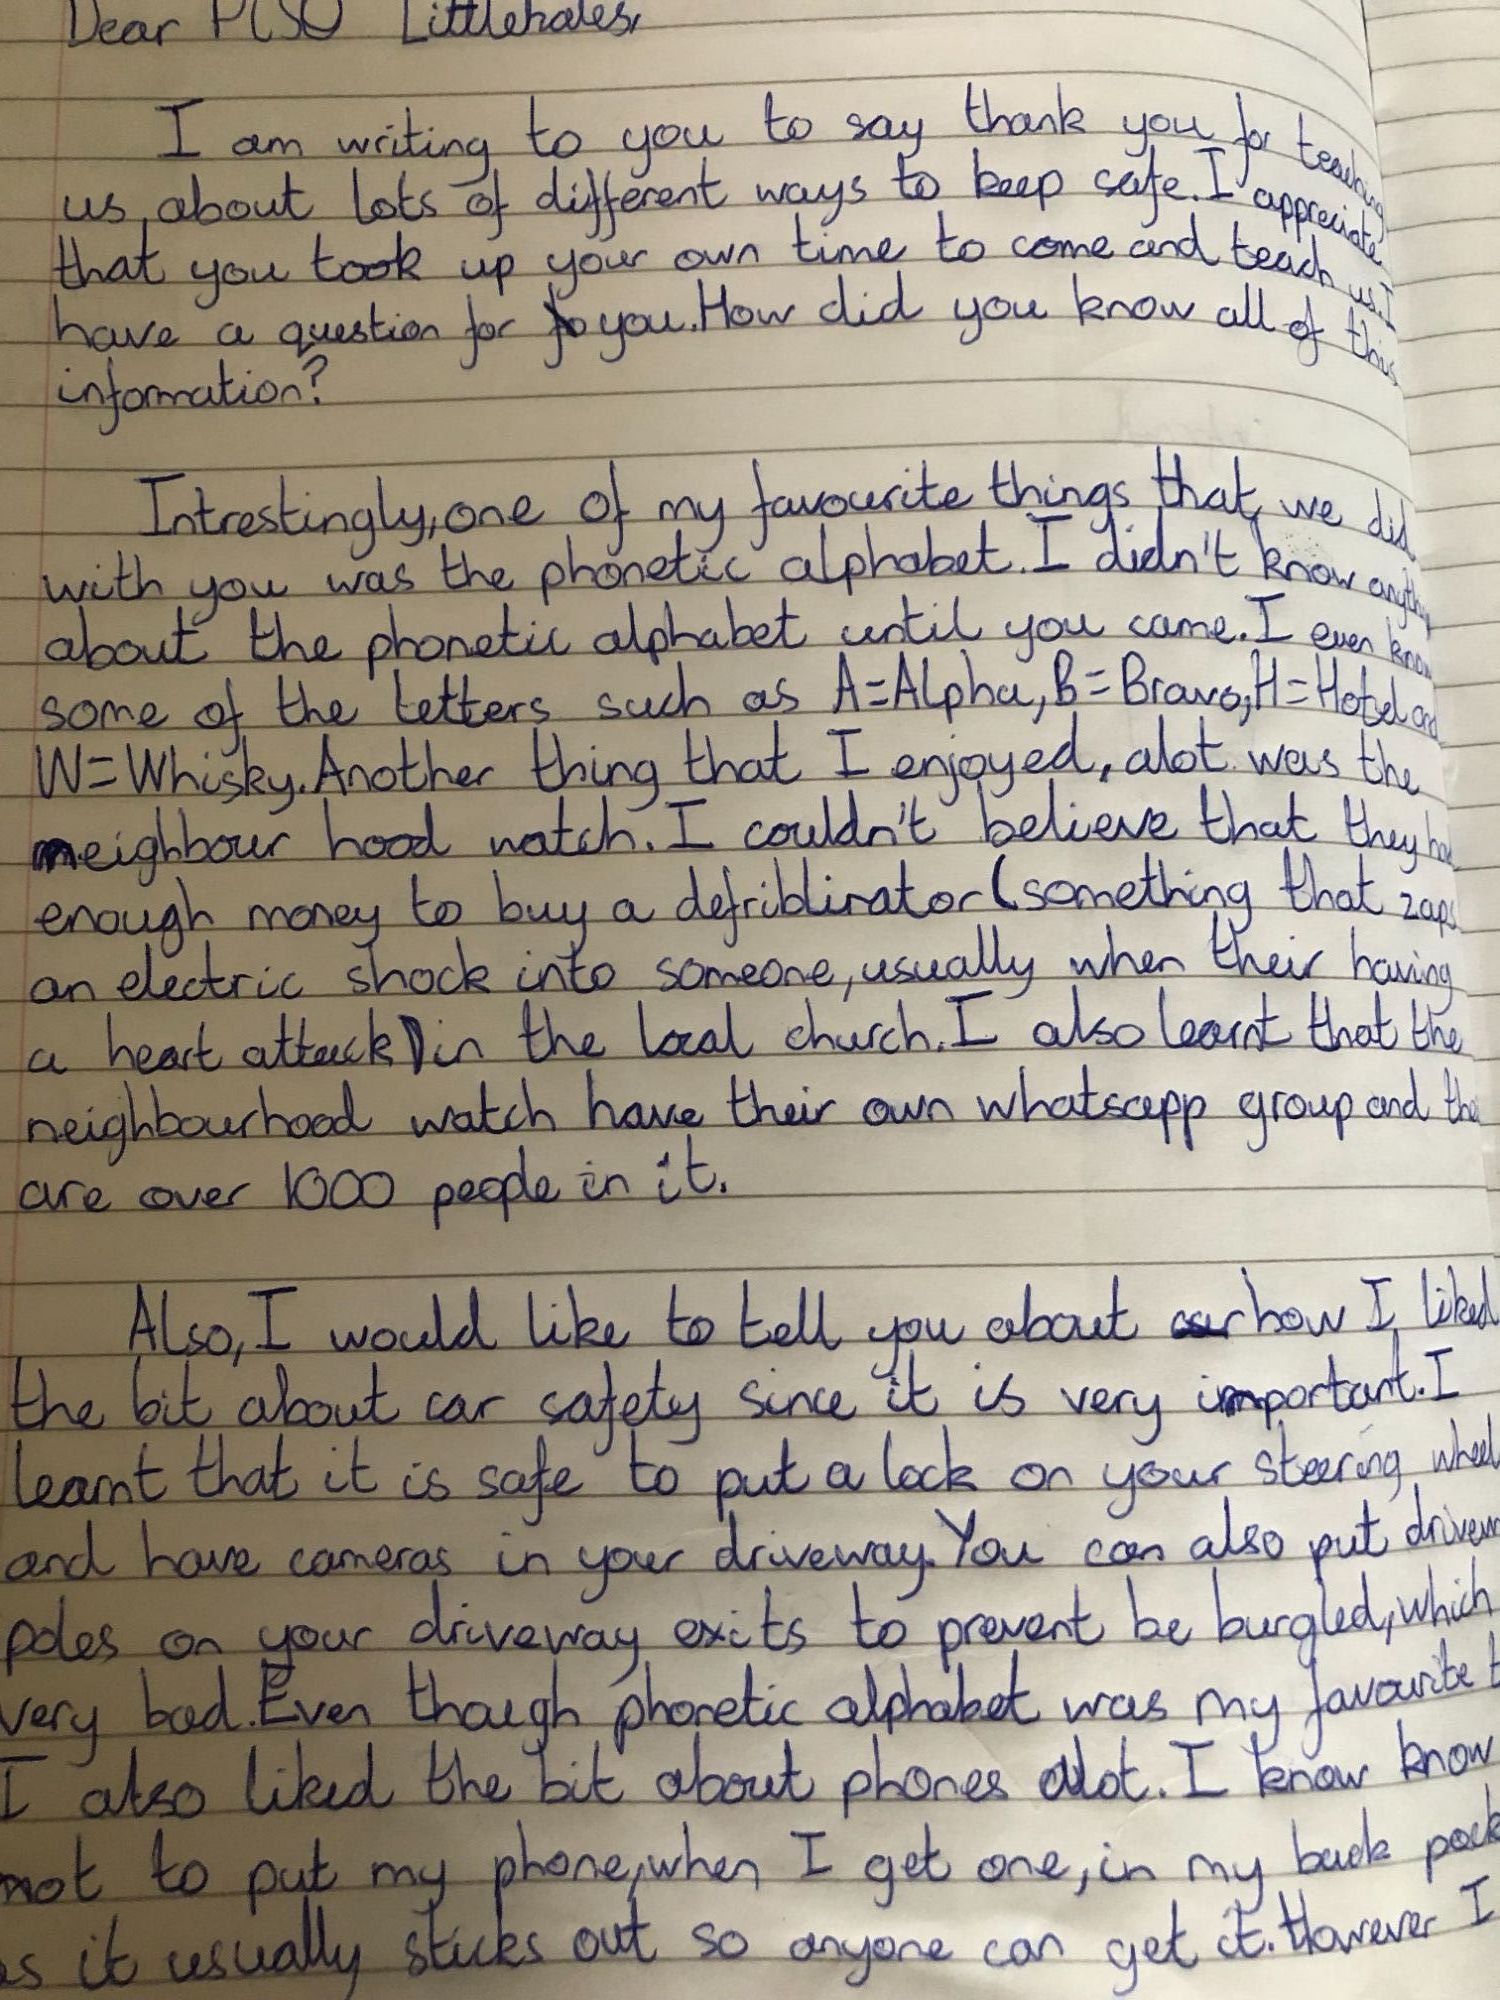 Dear PCSO Littlehales,
I am writing to you to say thank you for teaching
us, about lots of different ways to keep safe. I appreciate
that you took up your own time to come and teach us. I
have a question for you. How did you know all of this
information?
Intrestingly, one of my favourite things that we did
with you was the phonetic alphabet. I didn't know anythi
about the phonetic alphabet until you came. I even know
some of the letters such as A=Alpha, B=Bravo, H=Hotel and
W=Whisky. Another thing that I enjoyed, alot was the
neighbour hood watch. I couldn't believe that they had
enough money to buy a defriblirator (something that zaps
an electric shock into someone, usually when their having
a heart attack) in the local church. I also learnt that the
neighbourhood watch have their own whatsapp group and the
are over 1000 people in it.
Also, I would like to tell you about how I liked
the bit about car safety since it is very important. I
learnt that it is safe to put a lock on your steering wheel
and have cameras in your driveway. You can also put drivew
poles on your driveway exits to prevent be burgled, which
very bad. Even though phonetic alphabet was my favourite t
I also liked the bit about phones alot. I know know
not to put my phone, when I get one, in my back pock
as it usually sticks out so anyone can get it. However I